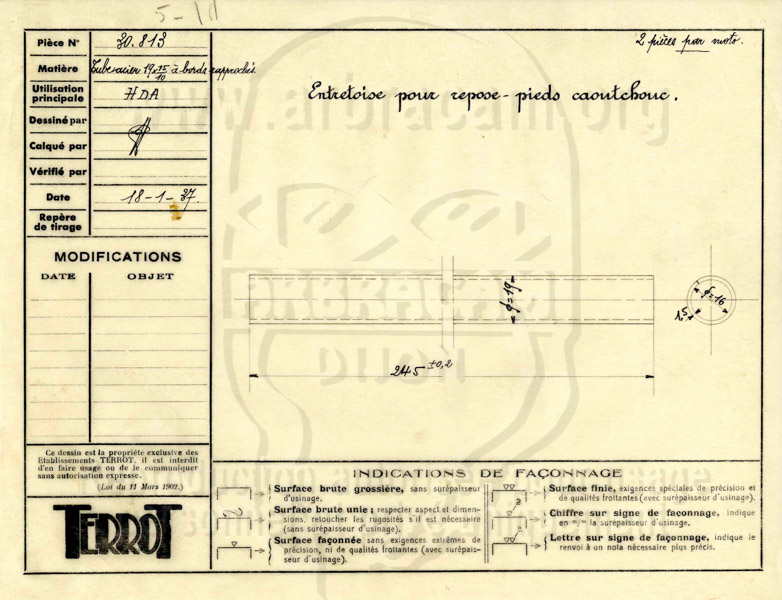 5-11
Pièce N° 30.813
2 pièces par moto.
Matière Tube acier 19x15/10 à bords rapprochés.
Utilisation principale HDA
Entretoise pour repose-pieds caoutchouc.
www.arbracam.org
Dessiné par
Calqué par
Vérifié par
Date 18-1-37.
Repère de tirage
MODIFICATIONS
DATE OBJET
ARBRACAM
DIJON
ɸ=19
ɸ=16
1,5
245 ±0,2
Ce dessin est la propriété exclusive des
Etablissements TERROT, il est interdit
d'en faire usage ou de le communiquer
sans autorisation expresse.
(Loi du 11 Mars 1902.)
TERROT
INDICATIONS DE FAÇONNAGE
Surface brute grossière, sans surépaisseur
d'usinage.
Surface brute unie; respecter aspect et dimen-
sions, retoucher les rugosités s'il est nécessaire
(sans surépaisseur d'usinage).
Surface façonnée sans exigences extrêmes de
précision, ni de qualités frottantes (avec surépais-
seur d'usinage).
Surface finie, exigences spéciales de précision et
de qualités frottantes (avec surépaisseur d'usinage).
Chiffre sur signe de façonnage, indique
en m/m la surépaisseur d'usinage.
Lettre sur signe de façonnage, indique le
renvoi à un nota nécessaire plus précis.